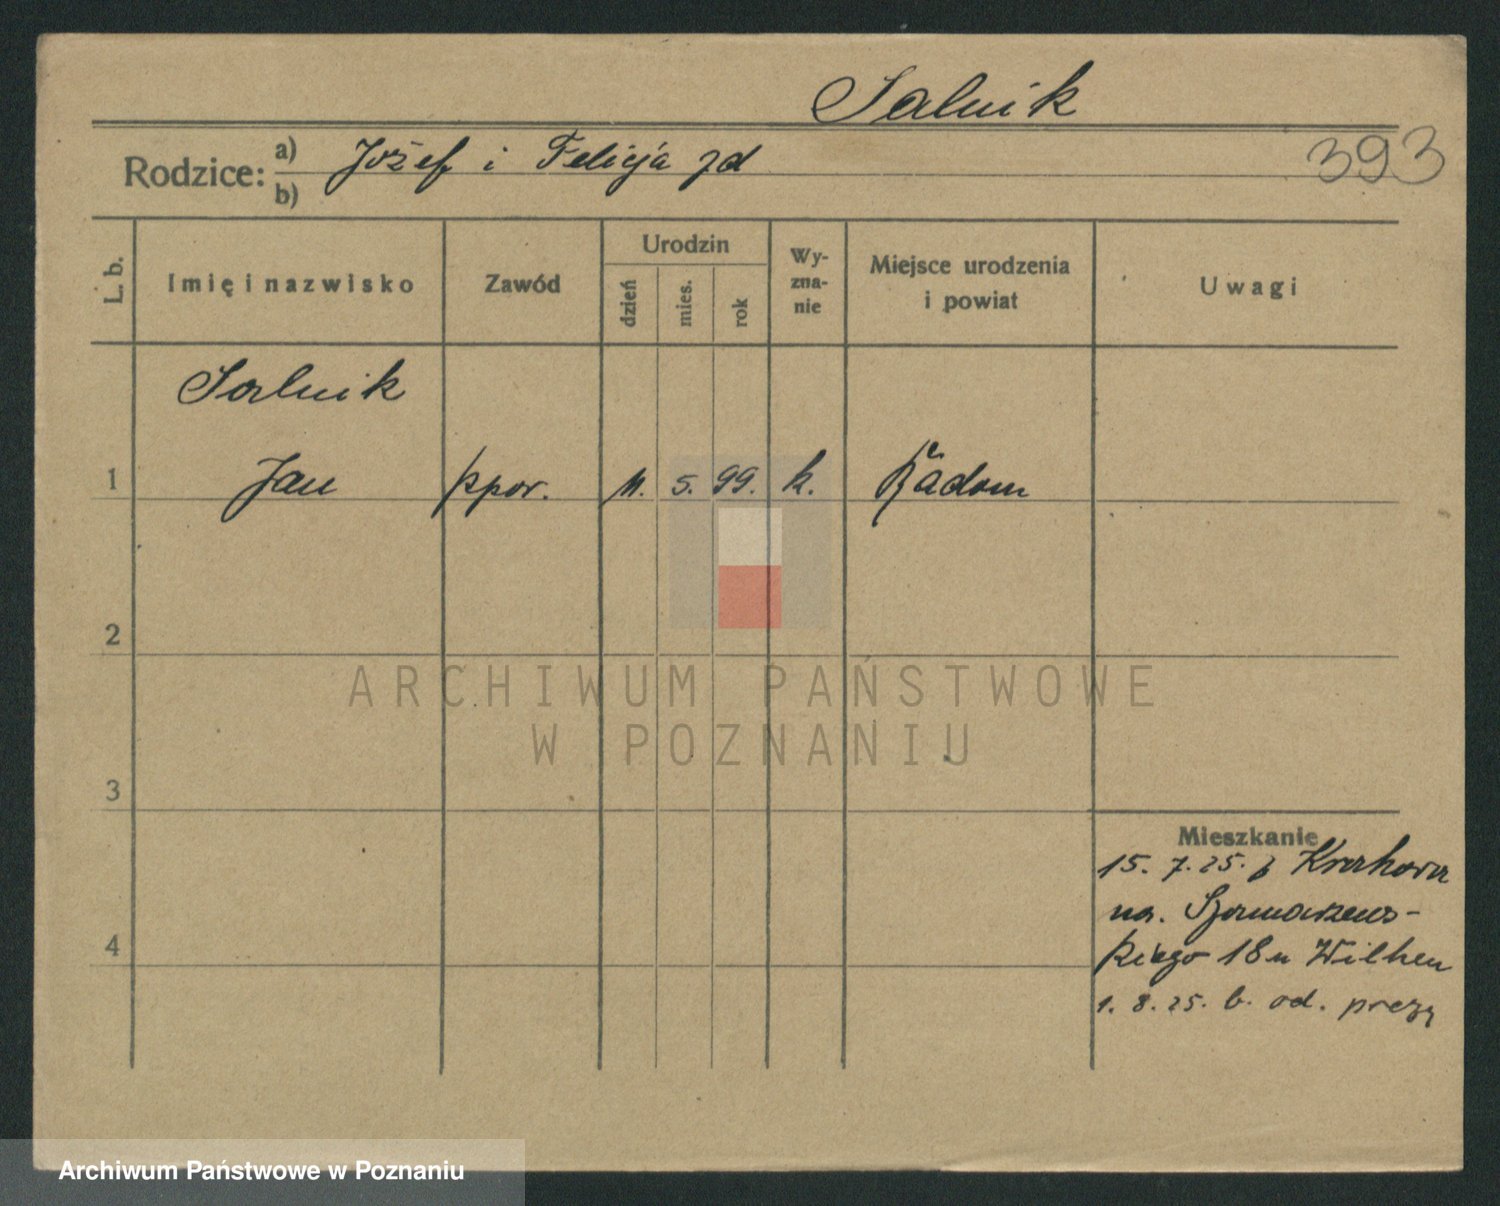 Salnik
Rodzice: a) Józef i Felicja zd
b)
393
L. b.
Imię i nazwisko
Zawód
Urodzin
dzień
mies.
rok
Wy-
zna-
nie
Miejsce urodzenia
i powiat
Uwagi
Salnik
1 Jan ppor. 11. 5. 99. k. Radom
2
3
4
Mieszkanie
15. 7. 25. z Krakowa
na. Szamarzews-
kiego 18 u Wilhen
1. 8. 25. b. od.
ARCHIWUM PAŃSTWOWE
W POZNANIU
Archiwum Państwowe w Poznaniu